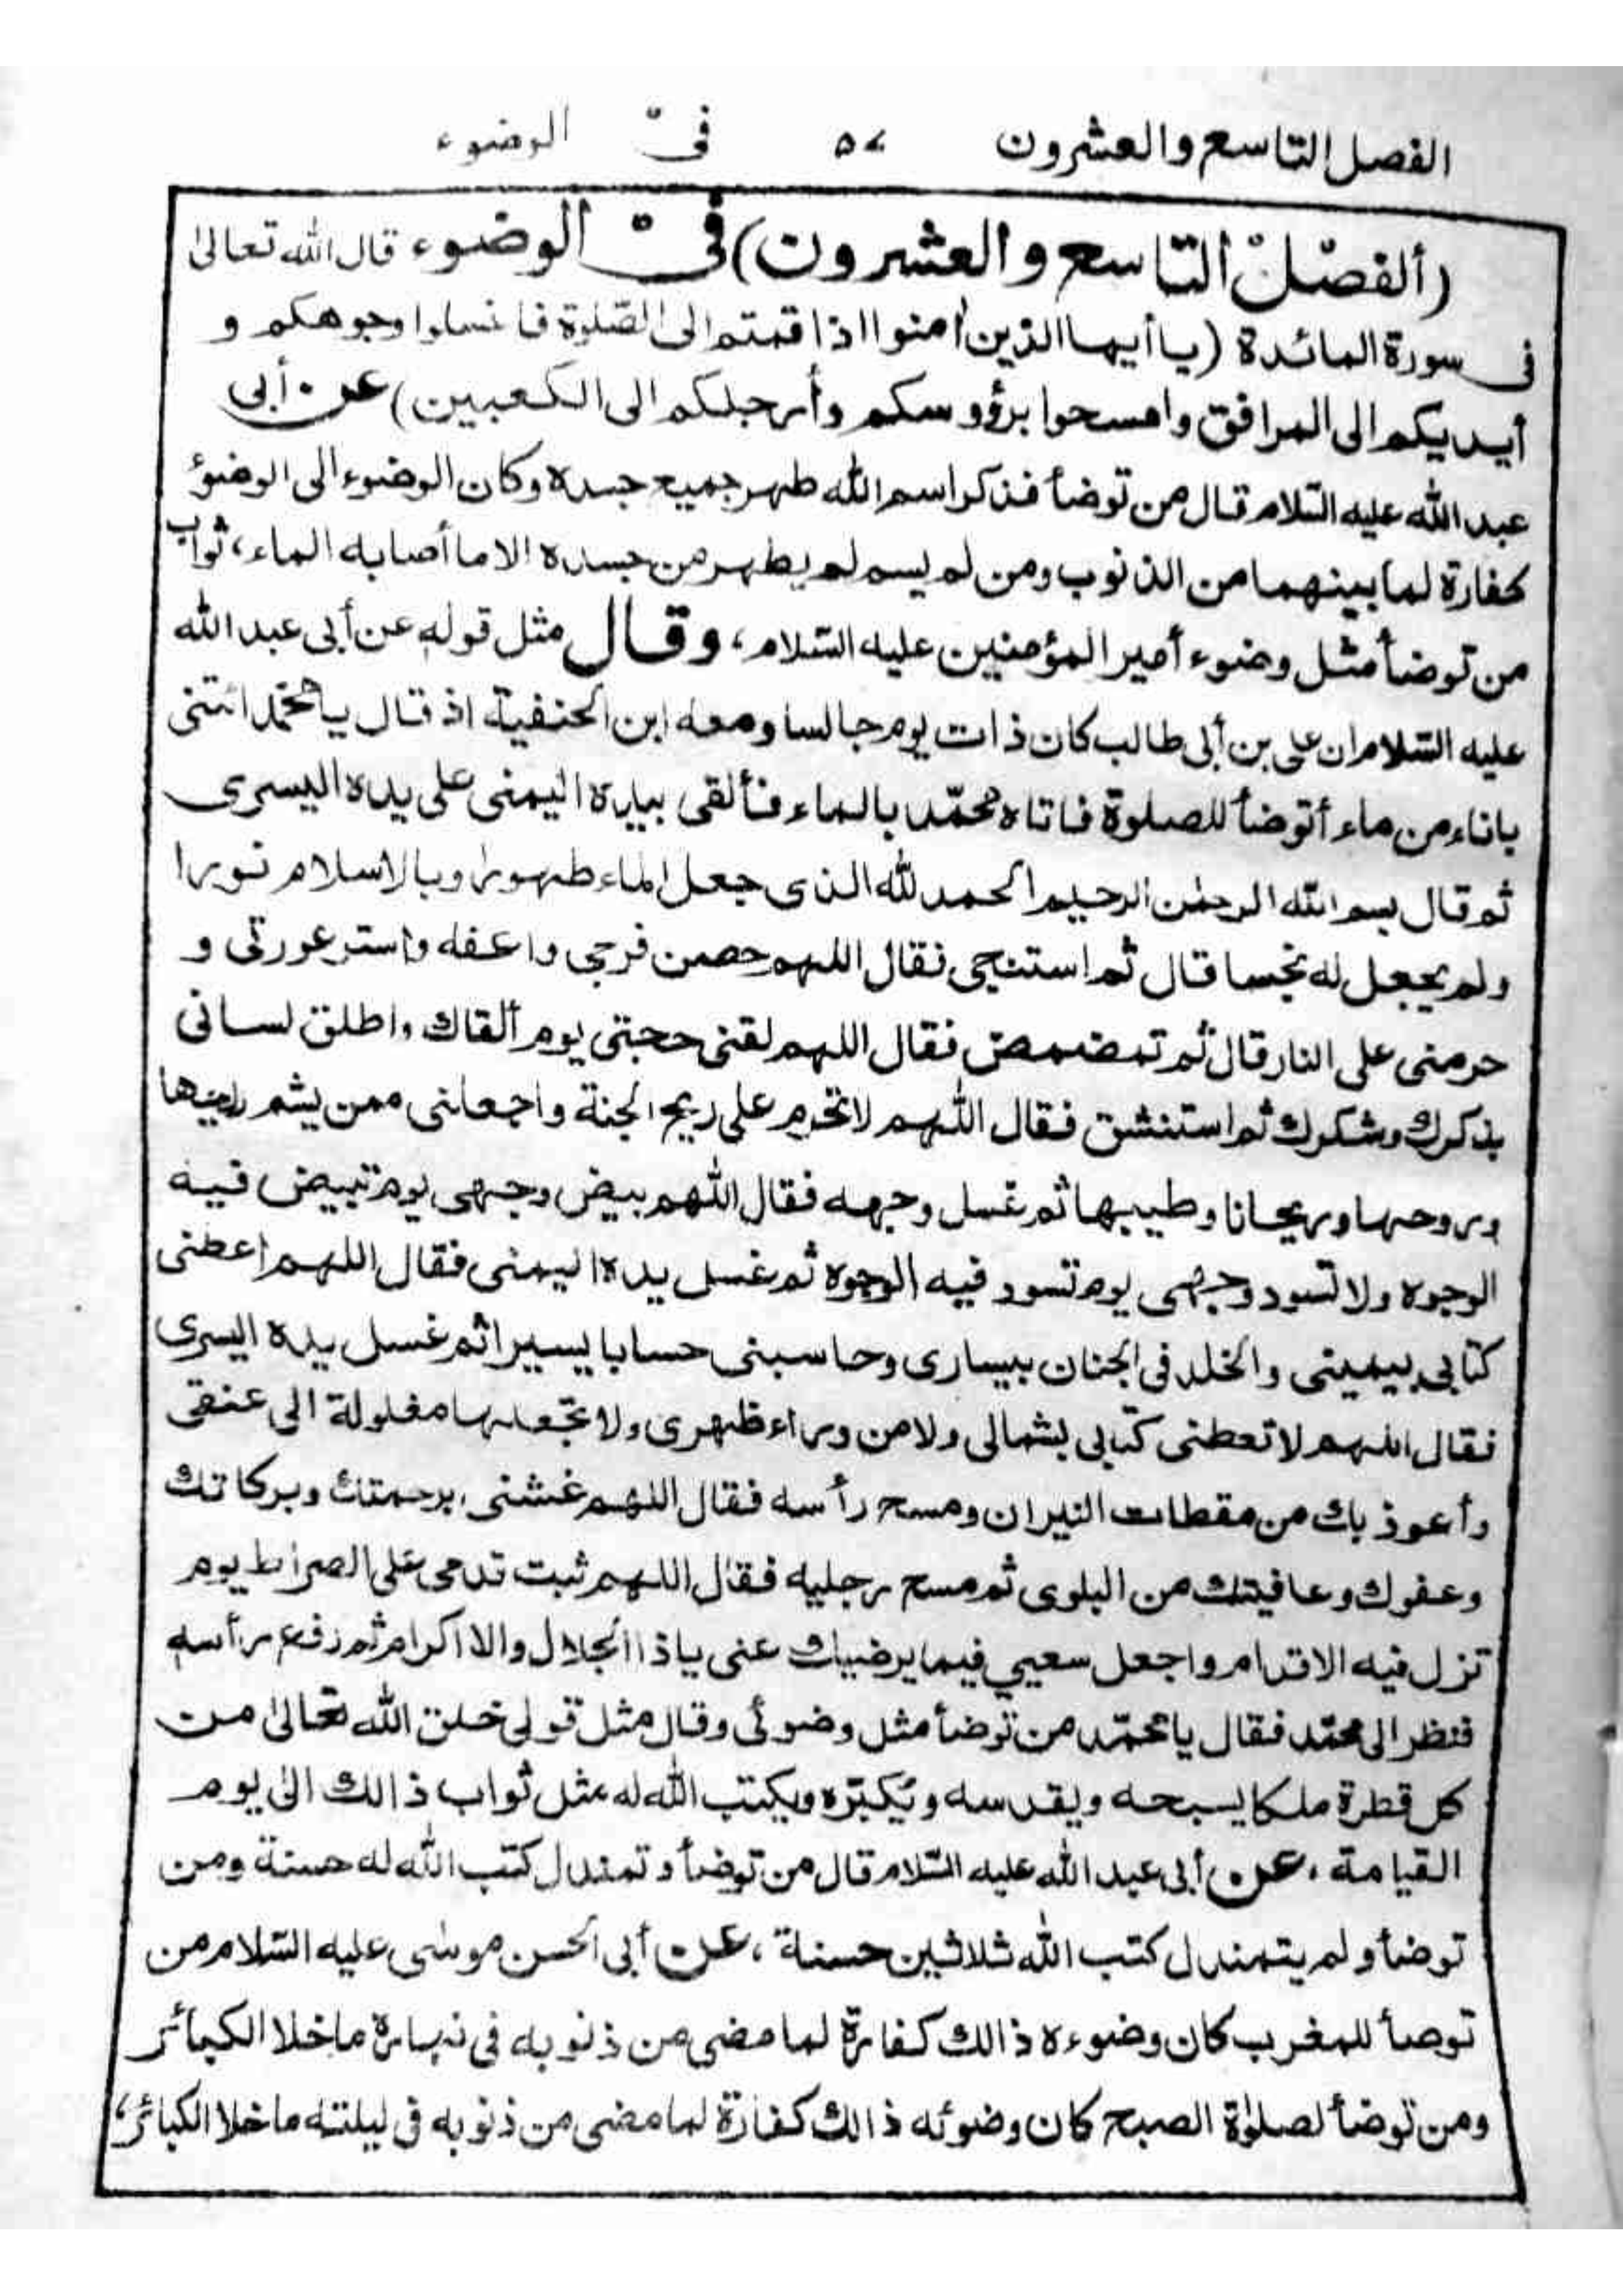 الفصل التاسع والعشرون ٥٧ في الوضوء
(ألفصل التاسع والعشرون) في الوضوء قال الله تعالى
فى سورة المائدة (يا أيها الذين امنوا اذا قمتم الى الصلوة فاغسلوا وجوهكم و
أيديكم الى المرافق وامسحوا برؤوسكم وأرجلكم الى الكعبين) عن أبى
عبد الله عليه السلام قال من توضأ فذكر اسم الله طهر جميع جسده وكان الوضوء الى الوضوء
كفارة لما بينهما من الذنوب ومن لم يسم لم يطهر من جسده الا ما أصابه الماء، ثواب
من توضأ مثل وضوء أمير المؤمنين عليه السلام، وقال مثل قوله عن أبى عبد الله
عليه السلام ان على بن أبى طالب كان ذات يوم جالسا ومعه ابن الحنفية اذ قال يا محمد ائتنى
باناء من ماء أتوضأ للصلوة فاتاه محمّد بالماء فألقى بيده اليمنى على يده اليسرى
ثم قال بسم الله الرحمن الرحيم الحمد لله الذى جعل الماء طهورا وبالاسلام نورا
ولم يجعل له نجسا قال ثم استنجى فقال اللهم حصن فرجى واعفه واستر عورتى و
حرمنى على النار قال ثم تمضمض فقال اللهم لقنى حجتى يوم ألقاك واطلق لسانى
بذكرك وشكرك ثم استنشق فقال اللهم لا تحرم على ريح الجنة واجعلنى ممن يشم ريحها
وروحها وريحانا وطيبها ثم غسل وجهه فقال اللهم بيض وجهى يوم تبيض فيه
الوجوه ولا تسود وجهى يوم تسود فيه الوجوه ثم غسل يده اليمنى فقال اللهم اعطنى
كتابى بيمينى والخلد فى الجنان بيسارى وحاسبنى حسابا يسيرا ثم غسل يده اليسرى
فقال اللهم لا تعطنى كتابى بشمالى ولا من وراء ظهرى ولا تجعلها مغلولة الى عنقى
وأعوذ بك من مقطات النيران ومسح رأسه فقال اللهم غشنى برحمتك وبركاتك
وعفوك وعافيتك من البلوى ثم مسح رجليه فقال اللهم ثبت قدمى على الصراط يوم
تزل فيه الاقدام واجعل سعيي فيما يرضيك عنى يا ذا الجلال والاكرام ثم رفع رأسه
فنظر الى محمّد فقال يا محمّد من توضأ مثل وضوئى وقال مثل قولى خلق الله تعالى من
كل قطرة ملكا يسبحه ويقدسه ويكبّره ويكتب الله له مثل ثواب ذالك الى يوم
القيامة، عن أبى عبد الله عليه السّلام قال من توضأ وتمندل كتب الله له حسنة ومن
توضأ ولم يتمندل كتب الله ثلاثين حسنة، عن أبى الحسن موسى عليه السّلام من
توضأ للمغرب كان وضوءه ذالك كفارة لما مضى من ذنوبه فى نهاره ماخلا الكبائر
ومن توضأ لصلوة الصبح كان وضوئه ذالك كفارة لما مضى من ذنوبه فى ليلته ماخلا الكبائر،